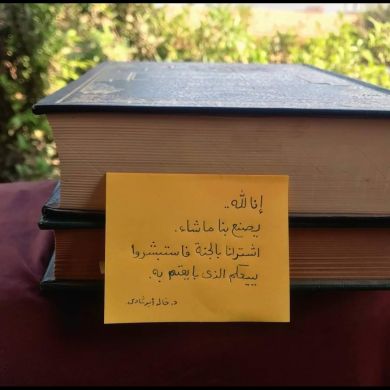 إنا لله..
يصنع بنا ما شاء.
اشترانا بالجنة فاستبشروا
ببيعكم الذي بايعتم به.
د. خالد أبو شادي